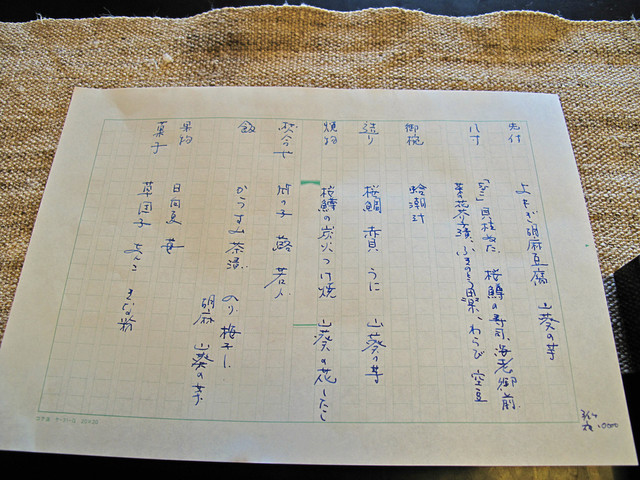 先付 よもぎ胡麻豆腐 山葵の芽
八寸 貝柱ぬた 桜鱒の寿司、海老御前
菜の花芥子漬、ふきのとう田楽、わらび 空豆
御椀 蛤潮汁
造り 桜鯛 赤貝 うに 山葵の芽
焼物 桜鱒の炭火つけ焼 山葵の花したし
炊合せ 竹の子 蕗 若布
飯 からすみ茶漬 のり 梅干し
胡麻 山葵の芽
果物 日向夏 苺
菓子 草団子 あんこ きな粉